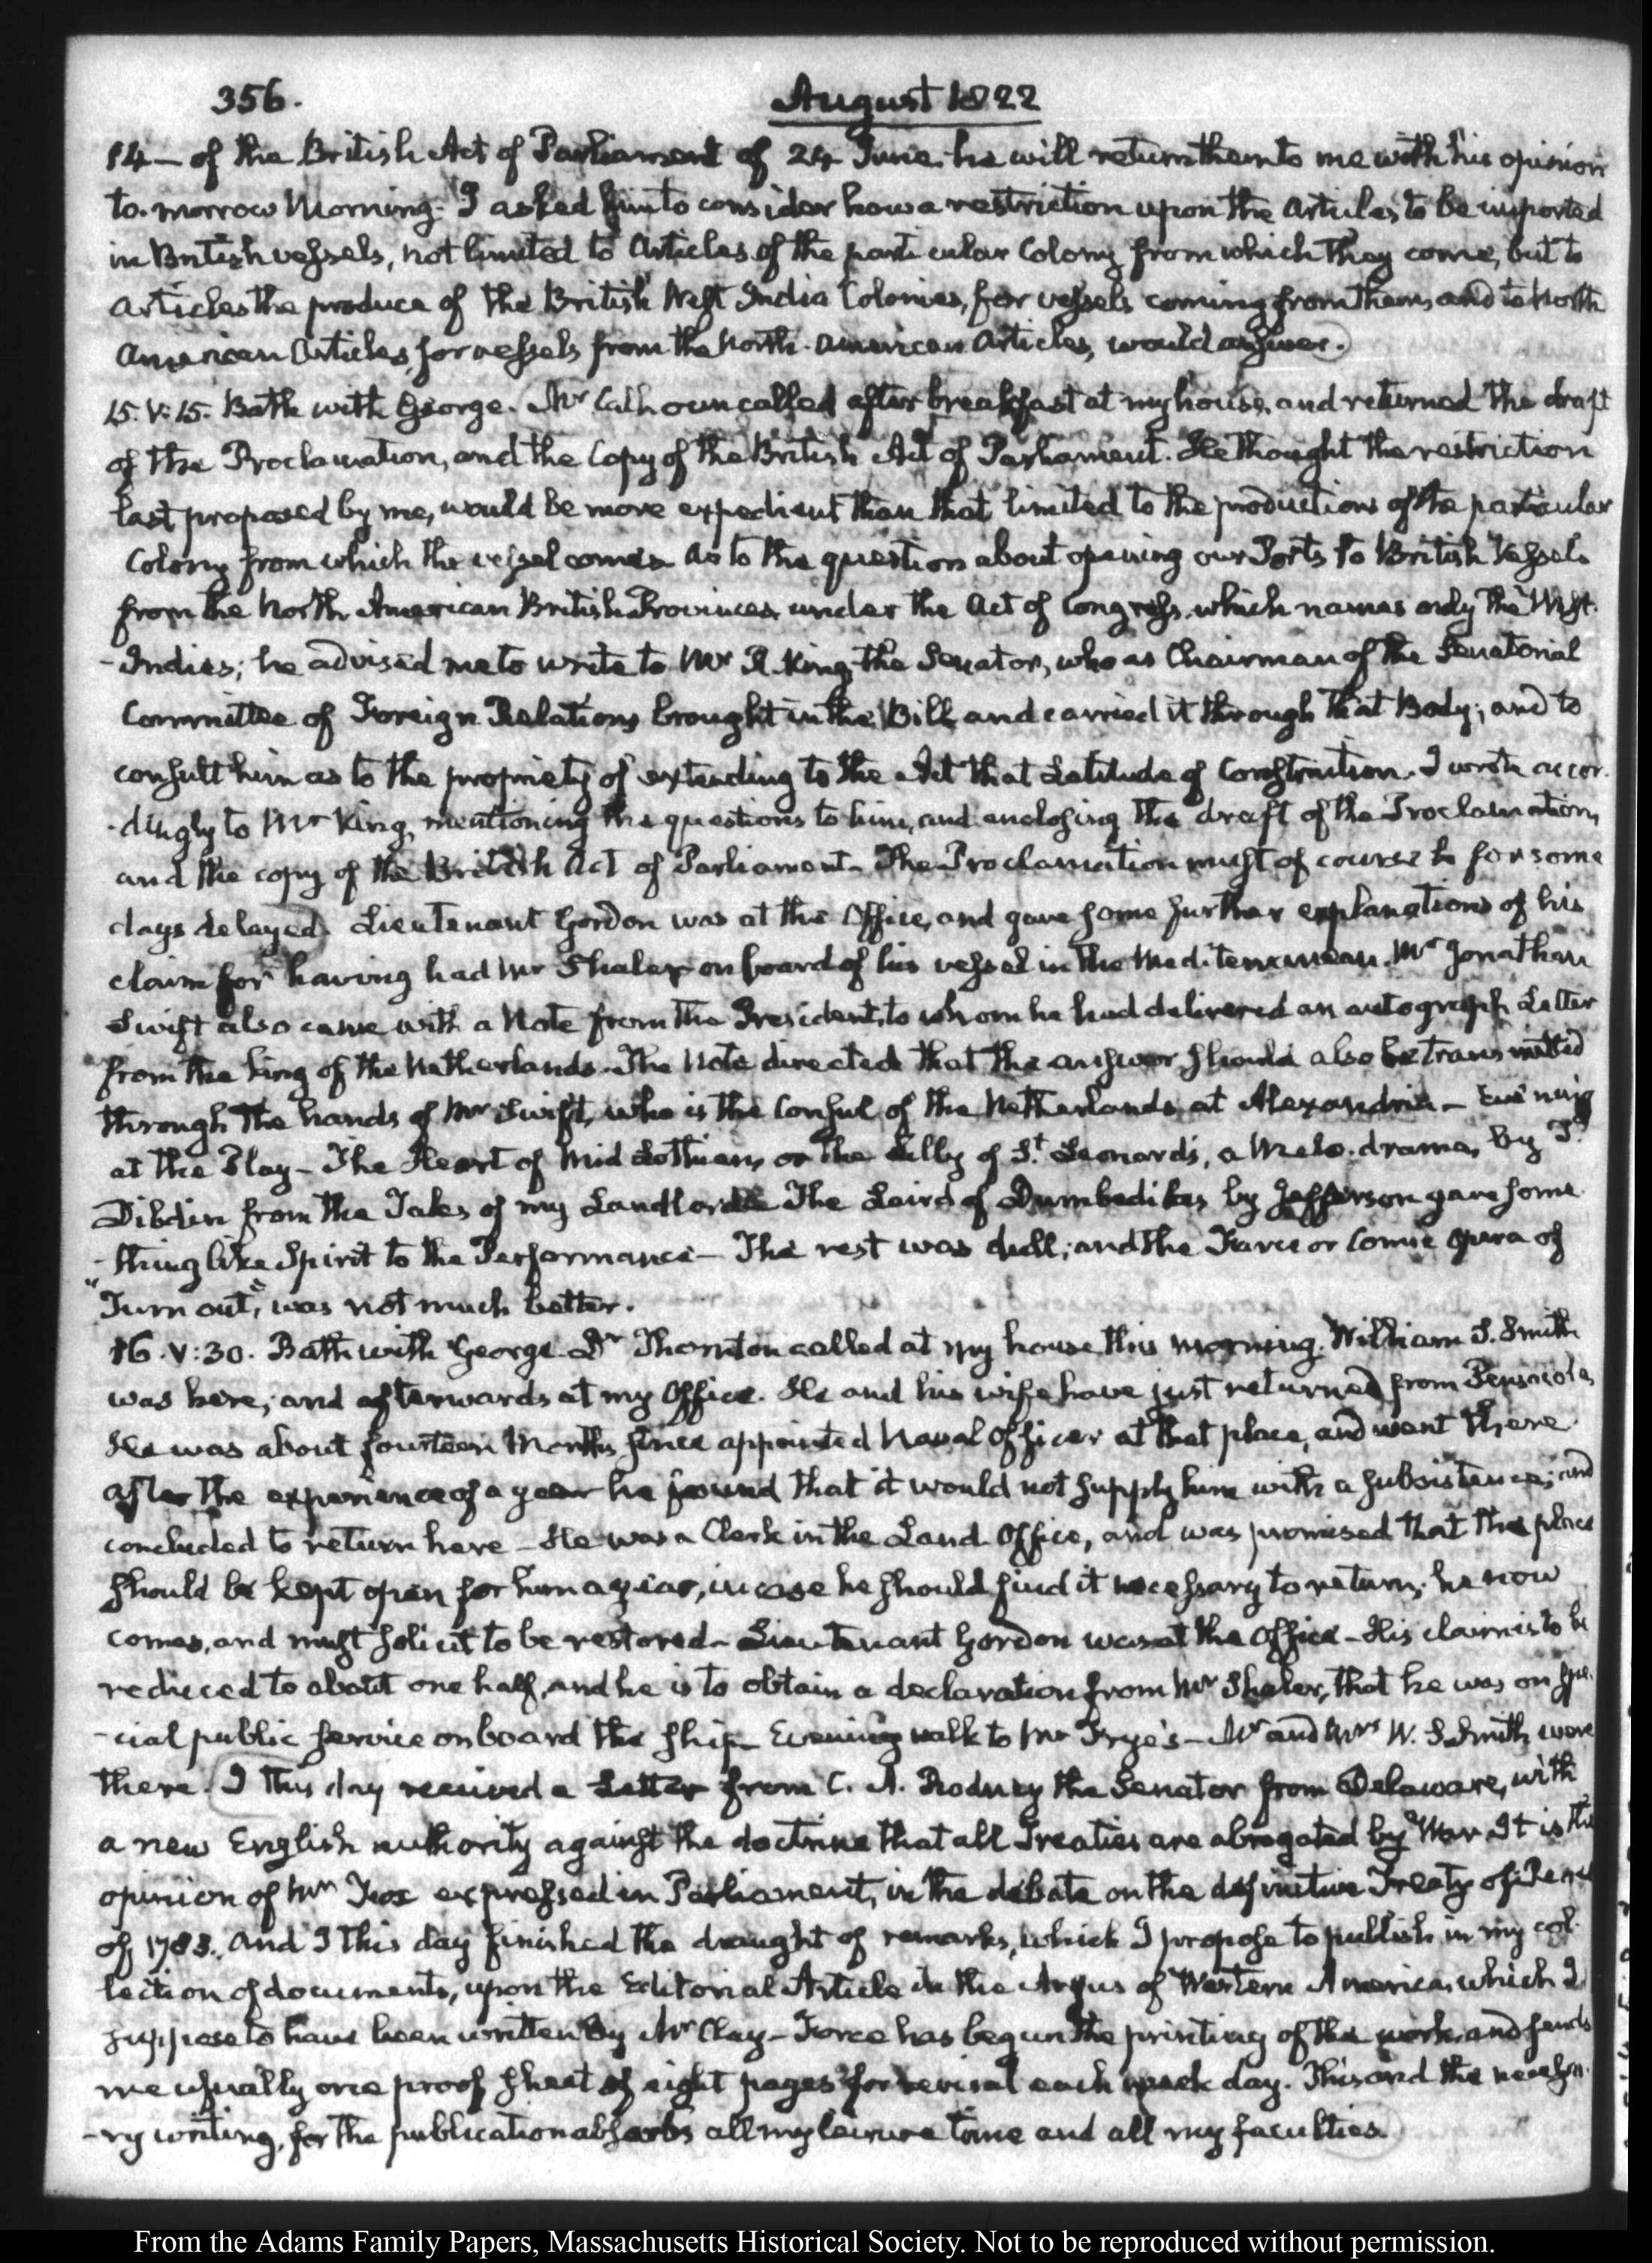 356.
August 1822
14 — of the British Act of Parliament of 24 June. he will return them to me with his opinion
to-morrow Morning. I asked him to consider how a restriction upon the Articles to be imported
in British vessels, not limited to Articles of the particular Colony from which they come, but to
Articles the produce of the British West India Colonies, for vessels coming from them, and to North
American Articles, for vessels from the North-American Articles, would answer.
15. V:15. Bath with George. Mr Calhoun called after breakfast at my house, and returned the draft
of the Proclamation, and the Copy of the British Act of Parliament. He thought the restriction
last proposed by me, would be more expedient than that limited to the productions of the particular
Colony from which the vessel comes. As to the question about opening our Ports to British Vessels
from the North American British Provinces, under the Act of Congress, which names only the West-
-Indies; he advised me to write to Mr R. King, the Senator, who as Chairman of the Senatorial
Committee of Foreign Relations brought in the Bill, and carried it through that Body; and to
consult him as to the propriety of extending to the Act that Latitude of Construction. I wrote accor-
-dingly to Mr King, mentioning the questions to him, and enclosing the draft of the Proclamation,
and the copy of the British Act of Parliament. The Proclamation must of course be for some
days delayed. Lieutenant Gordon was at the Office, and gave some further explanations of his
claim for having had Mr Shaler on board of his vessel in the Mediterranean. Mr Jonathan
Swift also came with a Note from the President, to whom he had delivered an autograph Letter
from the king of the Netherlands. The Note directed that the answer should also be transmitted
through the hands of Mr Swift, who is the Consul of the Netherlands at Alexandria — Evening
at the Play — The Heart of Mid Lothian, or the Lilly of St. Leonard's, a Melo-drama, by T.
Dibdin from the Tales of my Landlord. The Laird of Dumbedikes by Jefferson gave some-
-thing like Spirit to the Performance — The rest was dull; and the Farce or Comic Opera of
"Turn out," was not much better.
16. V:30. Bath with George. Dr Thornton called at my house this morning. William S. Smith
was here; and afterwards at my Office. He and his wife have just returned from Pensacola,
He was about fourteen Months since appointed Naval Officer at that place, and went there
after the experience of a year he found that it would not supply him with a subsistence; and
concluded to return here — He was a Clerk in the Land Office, and was promised that the place
should be kept open for him a year, in case he should find it necessary to return; he now
comes, and must solicit to be restored — Lieutenant Gordon was at the Office — His claim is to be
reduced to about one half, and he is to obtain a declaration from Mr Shaler, that he was on spe-
-cial public service on board the ship — Evening walk to Mr Frye's — Mr and Mrs W. S. Smith were
there. I this day received a Letter from C. A. Rodney the Senator from Delaware, with
a new English authority against the doctrine that all Treaties are abrogated by War. It is the
opinion of Mr Fox expressed in Parliament, in the debate on the definitive Treaty of Peace
of 1783. And I this day finished the draught of remarks, which I propose to publish in my col-
lection of documents, upon the Editorial Article in the Argus of Western America, which I
suppose to have been written by Mr Clay — Force has begun the printing of the work, and sends
me usually one proof sheet of eight pages for revisal each week day. This and the necessa-
-ry writing, for the publication absorbs all my leisure time and all my faculties.
From the Adams Family Papers, Massachusetts Historical Society. Not to be reproduced without permission.